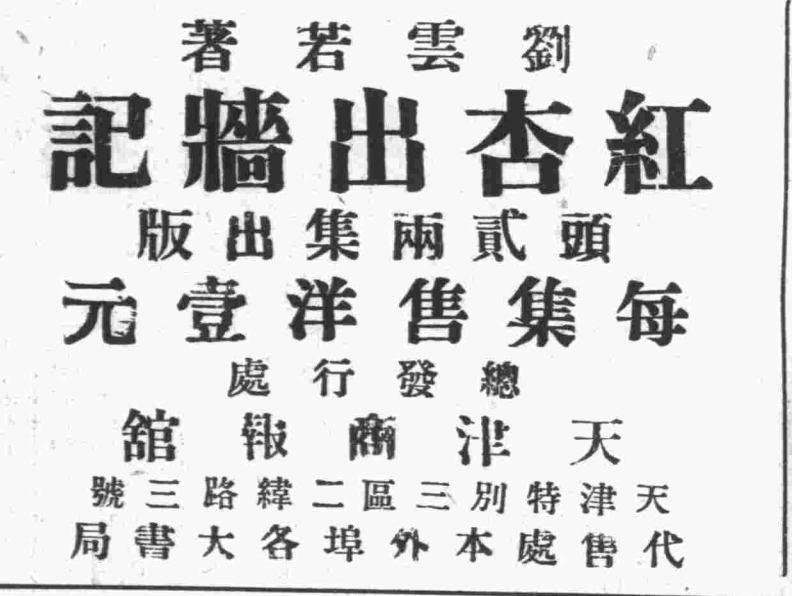 劉雲若著
紅杏出牆記
頭貳兩集出版
每集售洋壹元
總發行處
天津商報舘
天津特別三區二緯路三號
代售處本外埠各大書局